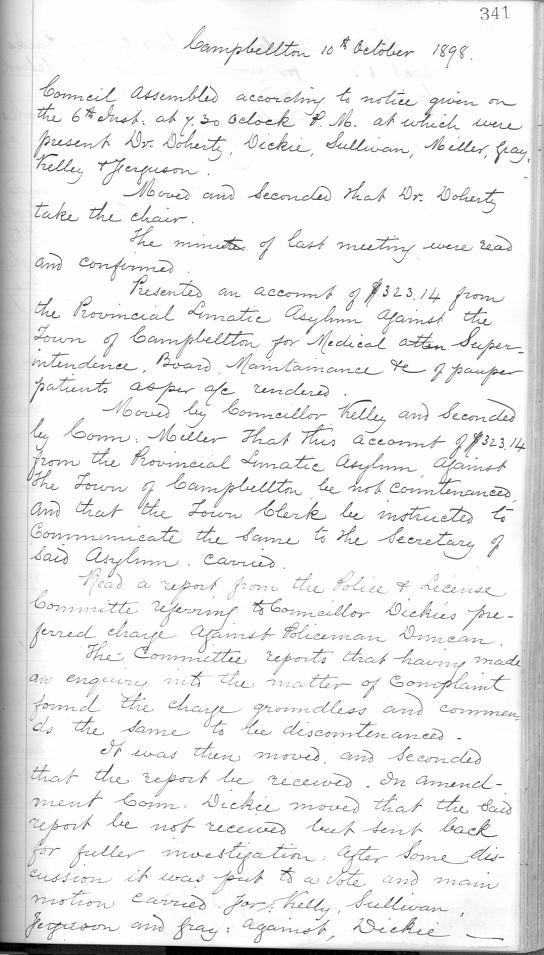 341
Campbellton 10th October 1898.
Council Assembled according to notice given on
the 6th Inst. at 7.30 Oclock P.M. at which were
present Dr. Doherty, Dickie, Sullivan, Miller, Gray,
Kelley & Ferguson.
Moved and Seconded that Dr. Doherty
take the chair.
The minutes of last meeting were read
and confirmed.
Presented an account of $323.14 from
the Provincial Lunatic Asylum Against the
Town of Campbellton for Medical atten Super-
intendence, Board, Maintainance &c of pauper
patients as per a/c rendered.
Moved by Councillor Kelley and Seconded
by Coun: Miller That this account of $323.14
from the Provincial Lunatic Asylum, Against
the Town of Campbellton be not countenanced,
and that the Town Clerk be instructed to
Communicate the same to the Secretary of
Said Asylum. carried.
Read a report from the Police & License
Committe referring to Councillor Dickies pre-
ferred charge against Policeman Duncan.
The Committee reports that having made
an enquiry into the matter of Complaint
found the charge groundless and commen-
ds the same to be discountenanced.
It was then moved and seconded
that the report be received. In amend-
ment Coun: Dickie moved that the Said
report be not received but sent back
for fuller investigation. After some dis-
cussion it was put to a vote and main
motion carried. for: Kelly, Sullivan,
Ferguson and Gray: against, Dickie —